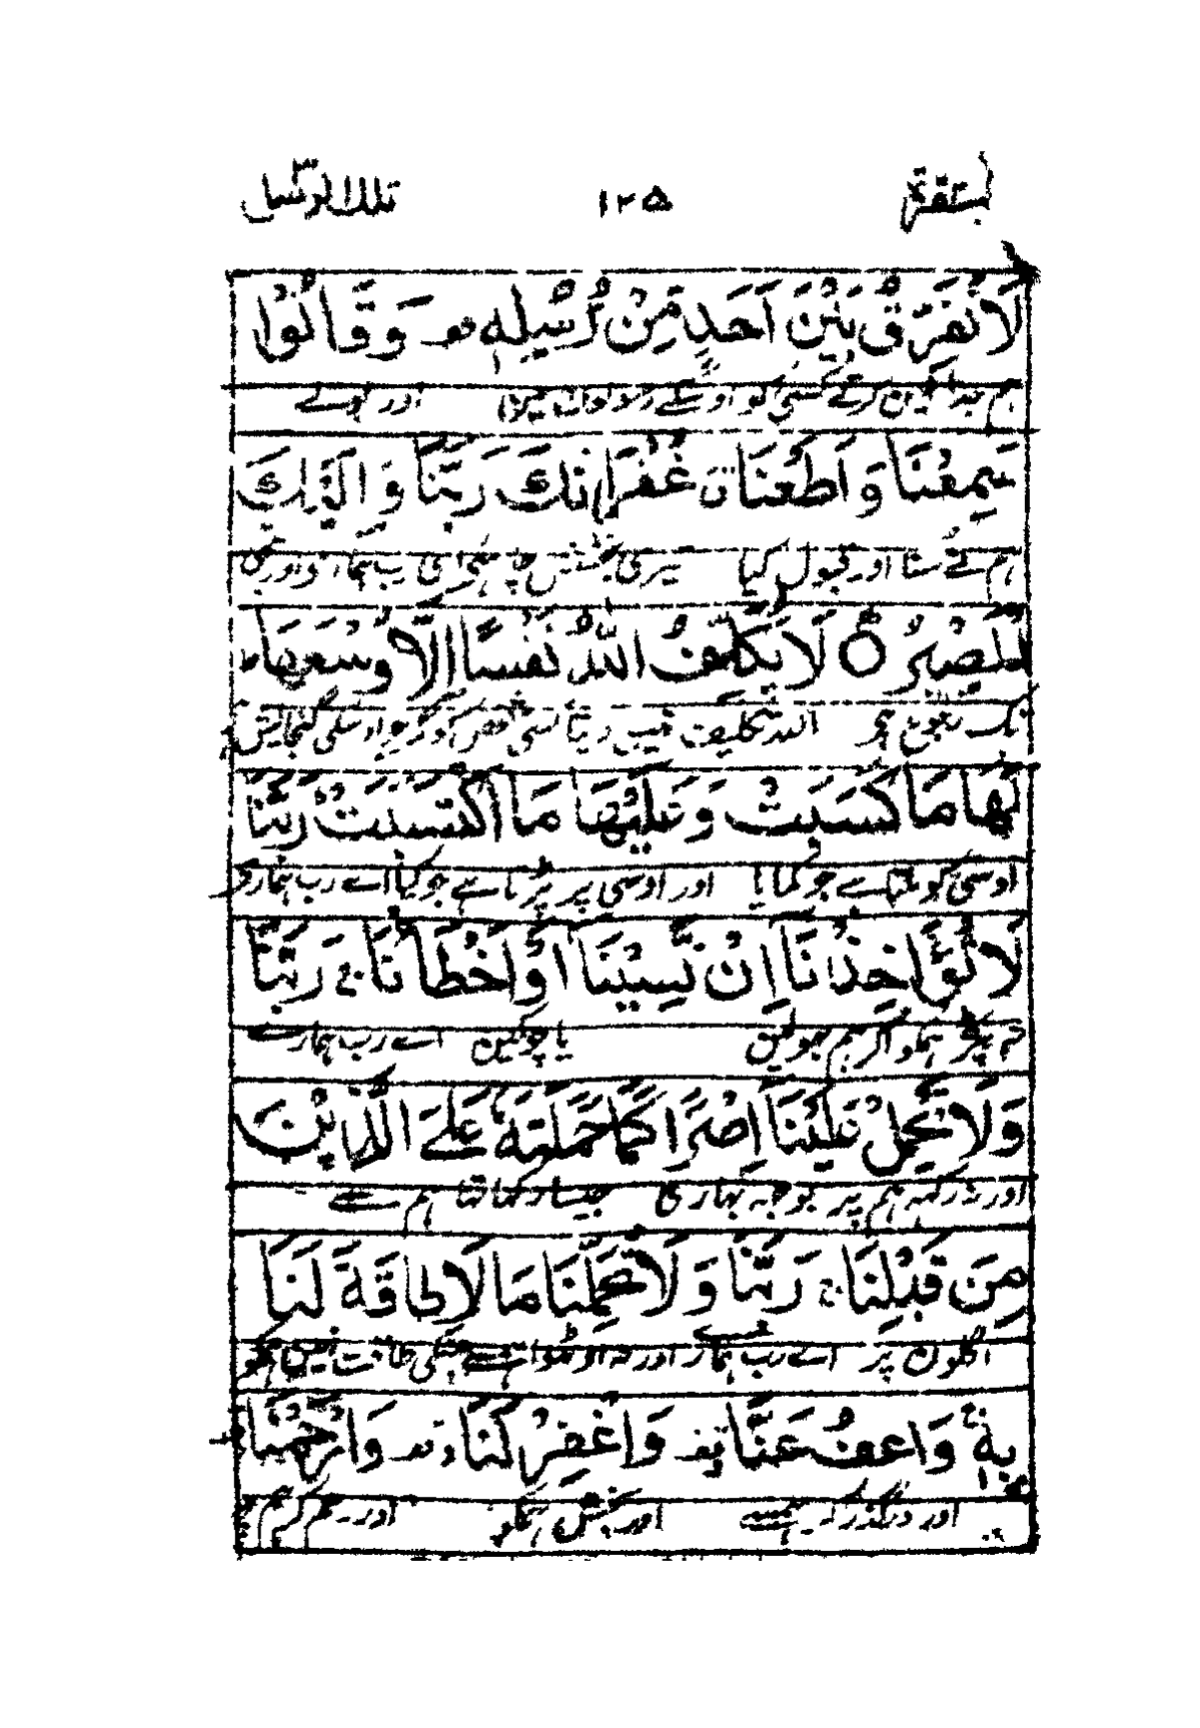 البقرة ١٢٥ تلك الرسل
لَا نُفَرِّقُ بَيْنَ اَحَدٍ مِّنْ رُّسُلِهٖ قف وَ قَالُوْا
ہم جدا نہیں کرتے کسی کو اوسکے رسولوں میں اور بولے
سَمِعْنَا وَ اَطَعْنَا ق غُفْرَانَكَ رَبَّنَا وَ اِلَيْكَ
ہم نے سنا اور قبول کیا تیری بخشش چاہئے اے رب ہمارے اور تیری
الْمَصِيْرُ ○ لَا يُكَلِّفُ اللّٰهُ نَفْسًا اِلَّا وُسْعَهَا ط
تک رجوع ہے اللہ تکلیف نہیں دیتا کسی شخص کو مگر جو اوسکی گنجایش
لَهَا مَا كَسَبَتْ وَ عَلَيْهَا مَا اكْتَسَبَتْ رَبَّنَا
اوسی کو ملتا ہے جو کمایا اور اوسی پر پڑتا ہے جو کیا اے رب ہمارے
لَا تُؤَاخِذْنَآ اِنْ نَّسِيْنَآ اَوْ اَخْطَاْنَا ج رَبَّنَا
نہ پکڑ ہمکو اگر ہم بھولیں یا چوکیں اے رب ہمارے
وَ لَا تَحْمِلْ عَلَيْنَآ اِصْرًا كَمَا حَمَلْتَهٗ عَلَى الَّذِيْنَ
اور نہ رکھ ہم پر بوجھ بھاری جیسا رکھا تھا ہم سے
مِنْ قَبْلِنَا ج رَبَّنَا وَ لَا تُحَمِّلْنَا مَا لَا طَاقَةَ لَنَا
اگلوں پر اے رب ہمارے اور نہ اوٹھوا ہمسے جسکی طاقت نہیں ہمکو
بِهٖ ج وَ اعْفُ عَنَّا قف وَ اغْفِرْ لَنَا قف وَ ارْحَمْنَا قف
اور درگذر کر ہمسے اور بخش ہمکو اور رحم کر ہم پر